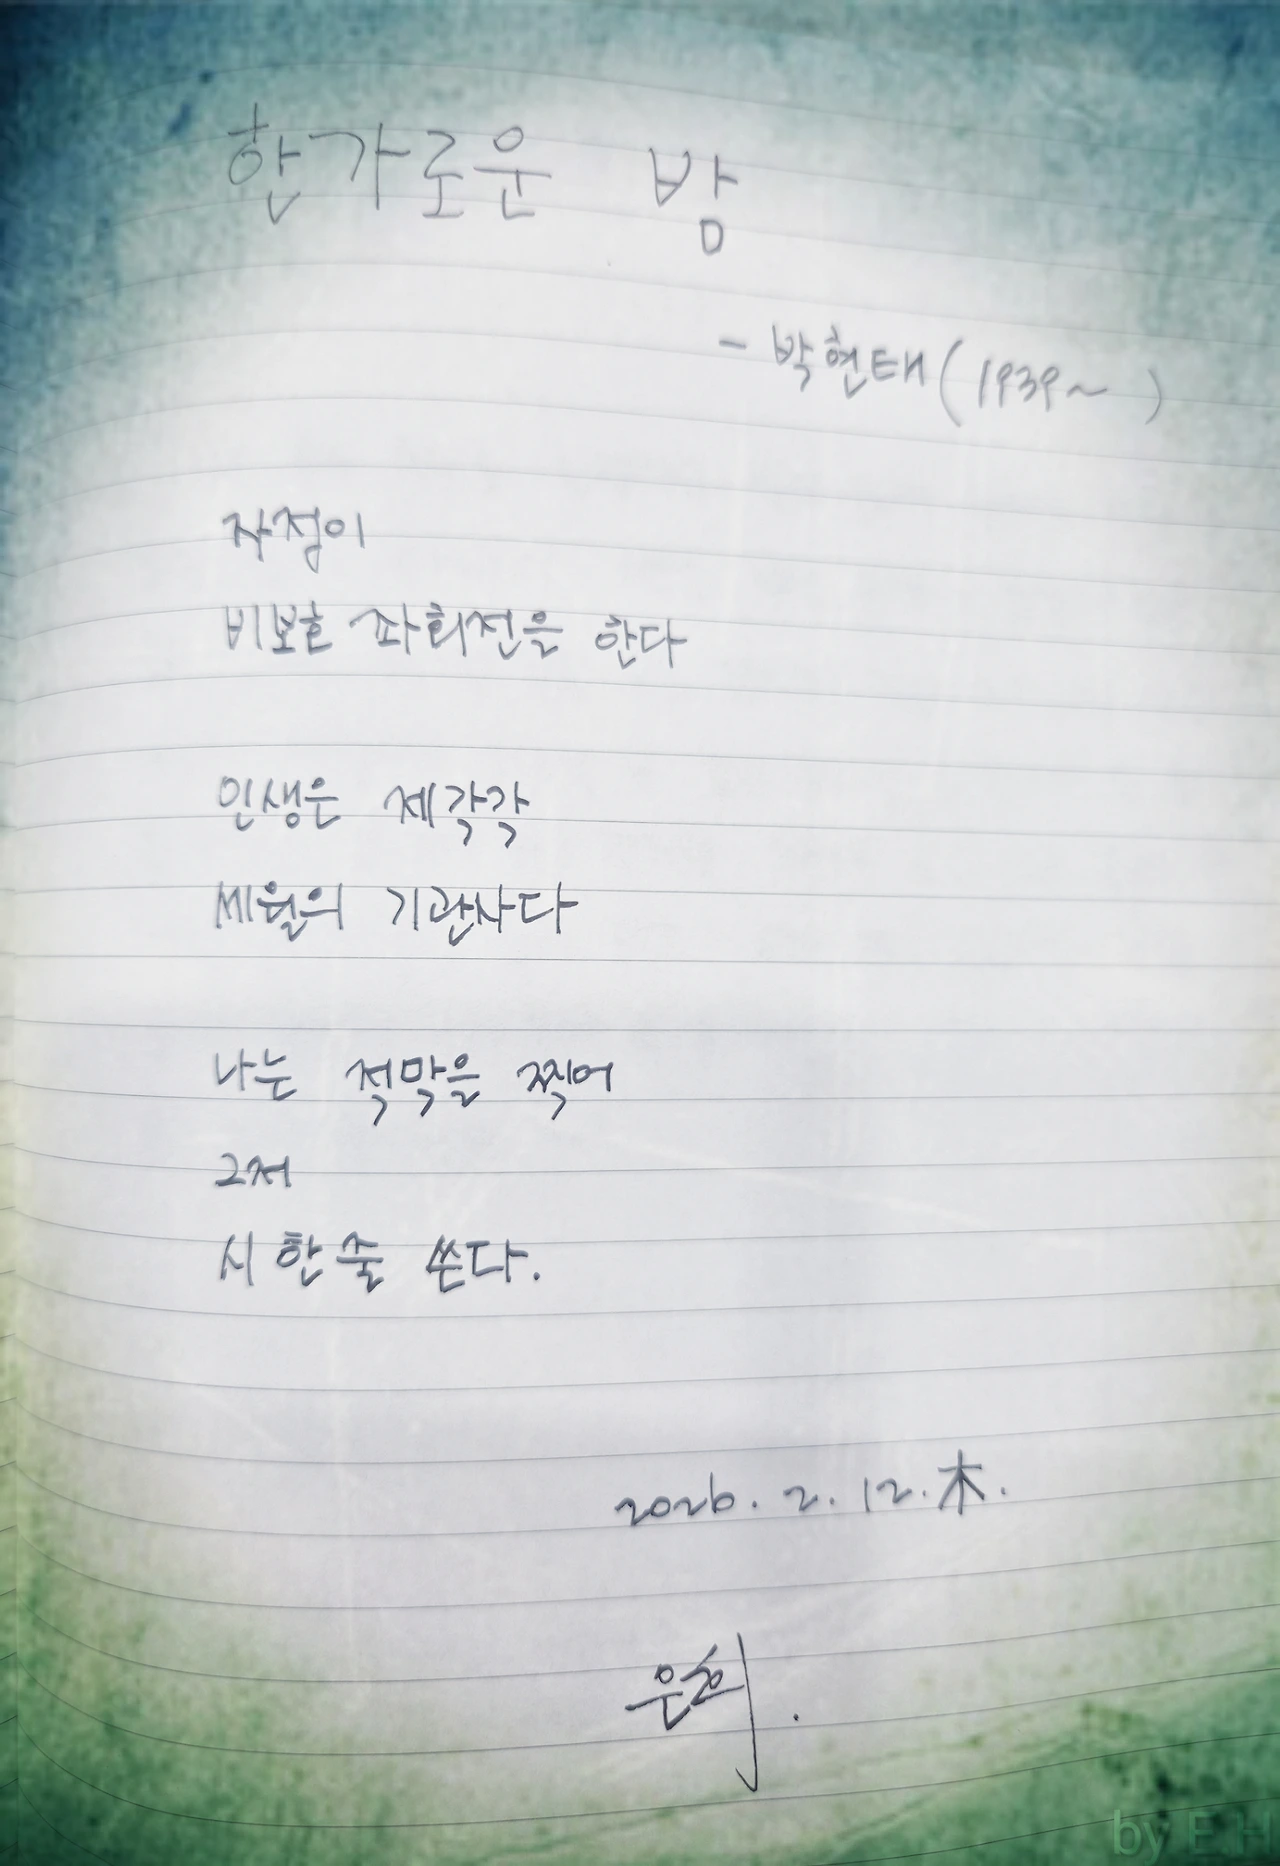 한가로운 밤
- 박현태(1939~ )
자정이
비보호 좌회전을 한다
인생은 제각각
세월의 기관사다
나는 적막을 찍어
그저
시 한 줄 쓴다.
2026. 2. 12. 木.
은희.
by E.H